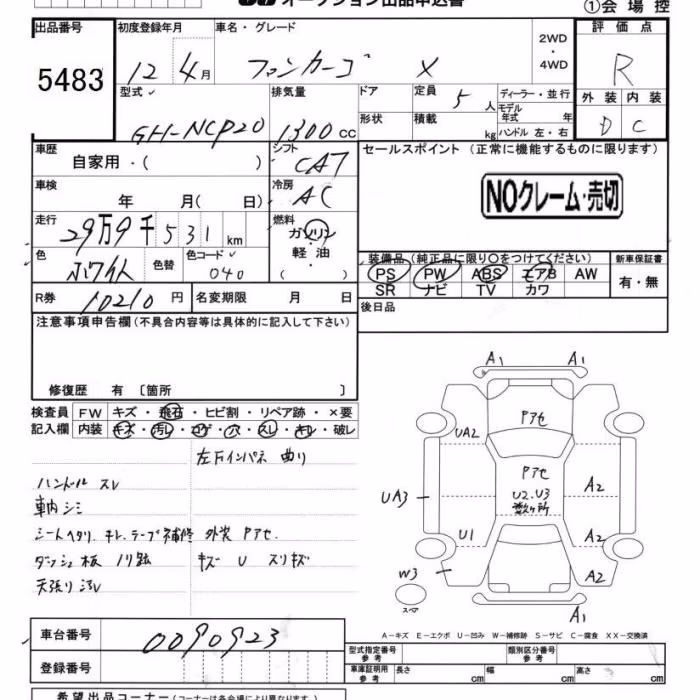 オークション出品申込書
①会場控
出品番号 初度登録年月 車名・グレード 2WD・4WD 評価点
5483 12年4月 ファンカーゴ X R
型式 排気量 ドア 定員 5人 ディーラー・並行 外装 内装
GH-NCP20 1300cc 形状 積載 kg モデル年式 年 ハンドル 左・右 D C
車歴 シフト セールスポイント(正常に機能するものに限ります)
自家用・( ) CA7
車検 冷房 NOクレーム・売切
年 月( 日) AC
走行 燃料
29万9千531km ガソリン・軽油・( )
色 色替 カラーコード 装備品(純正品に限り○をつけてください) 新車保証書
ホワイト 040 PS PW ABS エアB AW 有・無
SR ナビ TV カワ
R券 10210円 名変期限 月 日 後日品
注意事項申告欄(不具合内容等は具体的に記入して下さい)
修復歴 有 〔箇所 〕
検査員 FW キズ・飛石・ヒビ割・リペア跡・×要
記入欄 内装 キズ・汚レ・コゲ・穴・スレ・キレ・破レ
左Fインパネ 曲り
ハンドル スレ
車内シミ
シートヘタリ、キレ、テープ補修 外装 Pアセ
ダッシュ板 ノリ跡 キズ U スリキズ
天張り汚レ
A1 A1
Pアセ
UA2
Pアセ
UA3 U2、U3 A2
数ヶ所
U1 A2
W3 A2
スペア
A1
A－キズ E－エクボ U－凹み W－補修跡 S－サビ C－腐食 XX－交換済
車台番号 0090923
型式指定番号 参考 類別区分番号 参考
登録番号 車庫証明用 参考 長さ cm 幅 cm 高さ cm
希望出品コーナー(コーナーは各会場により異なります。)